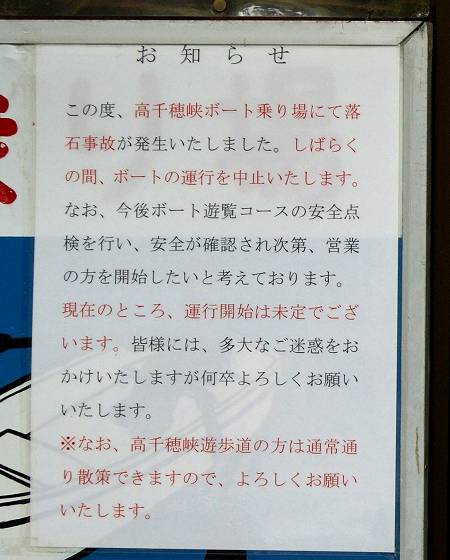 お知らせ
この度、高千穂峡ボート乗り場にて落
石事故が発生いたしました。しばらく
の間、ボートの運行を中止いたします。
なお、今後ボート遊覧コースの安全点
検を行い、安全が確認され次第、営業
の方を開始したいと考えております。
現在のところ、運行開始は未定でござ
います。皆様には、多大なご迷惑をお
かけいたしますが何卒よろしくお願い
いたします。
※なお、高千穂峡遊歩道の方は通常通
り散策できますので、よろしくお願い
いたします。